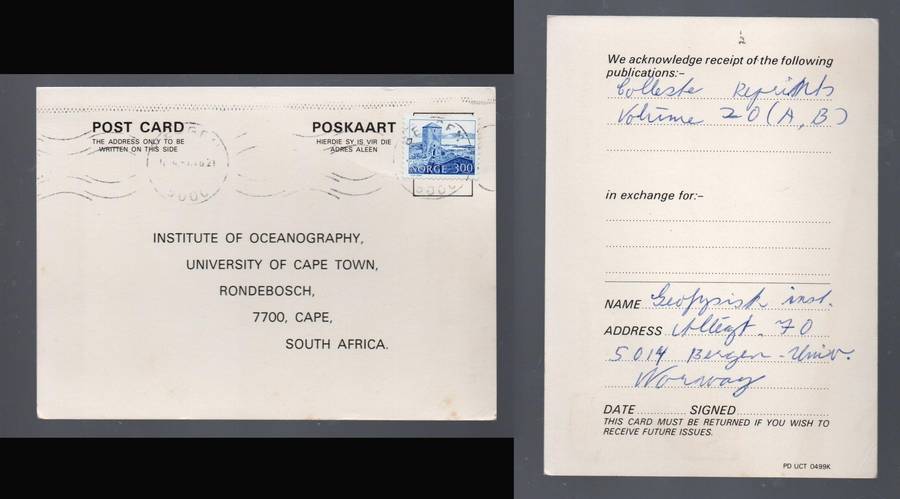 POST CARD
THE ADDRESS ONLY TO BE
WRITTEN ON THIS SIDE
POSKAART
HIERDIE SY IS VIR DIE
ADRES ALEEN
NORGE 3.00
INSTITUTE OF OCEANOGRAPHY,
UNIVERSITY OF CAPE TOWN,
RONDEBOSCH,
7700, CAPE,
SOUTH AFRICA.
We acknowledge receipt of the following
publications:-
Volume 20 (A, B)
in exchange for:-
NAME Geofysisk inst.
ADDRESS Allégt. 70
5014 Bergen - Univ.
Norway
DATE SIGNED
THIS CARD MUST BE RETURNED IF YOU WISH TO
RECEIVE FUTURE ISSUES.
PD UCT 0499K